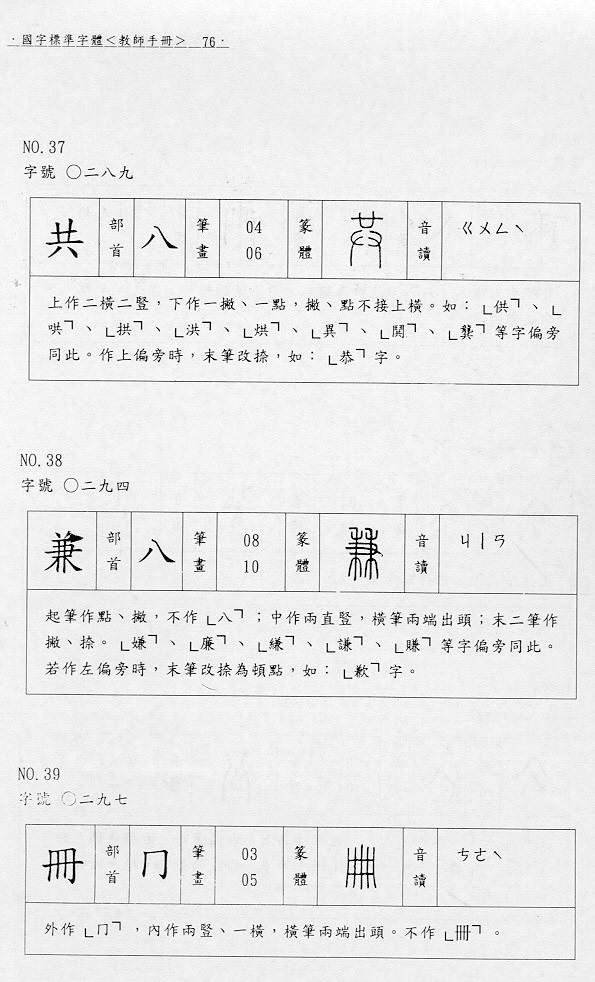 ·國字標準字體＜教師手冊＞ 76·
NO.37
字號 ○二八九
共 部首 八 筆畫 04 06 篆體 音讀 ㄍㄨㄥˋ
上作二橫二豎，下作一撇、一點，撇、點不接上橫。如：「供」、「
哄」、「拱」、「洪」、「烘」、「異」、「閧」、「龔」等字偏旁
同此。作上偏旁時，末筆改捺，如：「恭」字。
NO.38
字號 ○二九四
兼 部首 八 筆畫 08 10 篆體 音讀 ㄐㄧㄢ
起筆作點、撇，不作「八」；中作兩直豎，橫筆兩端出頭；末二筆作
撇、捺。「嫌」、「廉」、「縑」、「謙」、「賺」等字偏旁同此。
若作左偏旁時，末筆改捺為頓點，如：「歉」字。
NO.39
字號 ○二九七
冊 部首 冂 筆畫 03 05 篆體 音讀 ㄘㄜˋ
外作「冂」，內作兩豎、一橫，橫筆兩端出頭。不作「冊」。